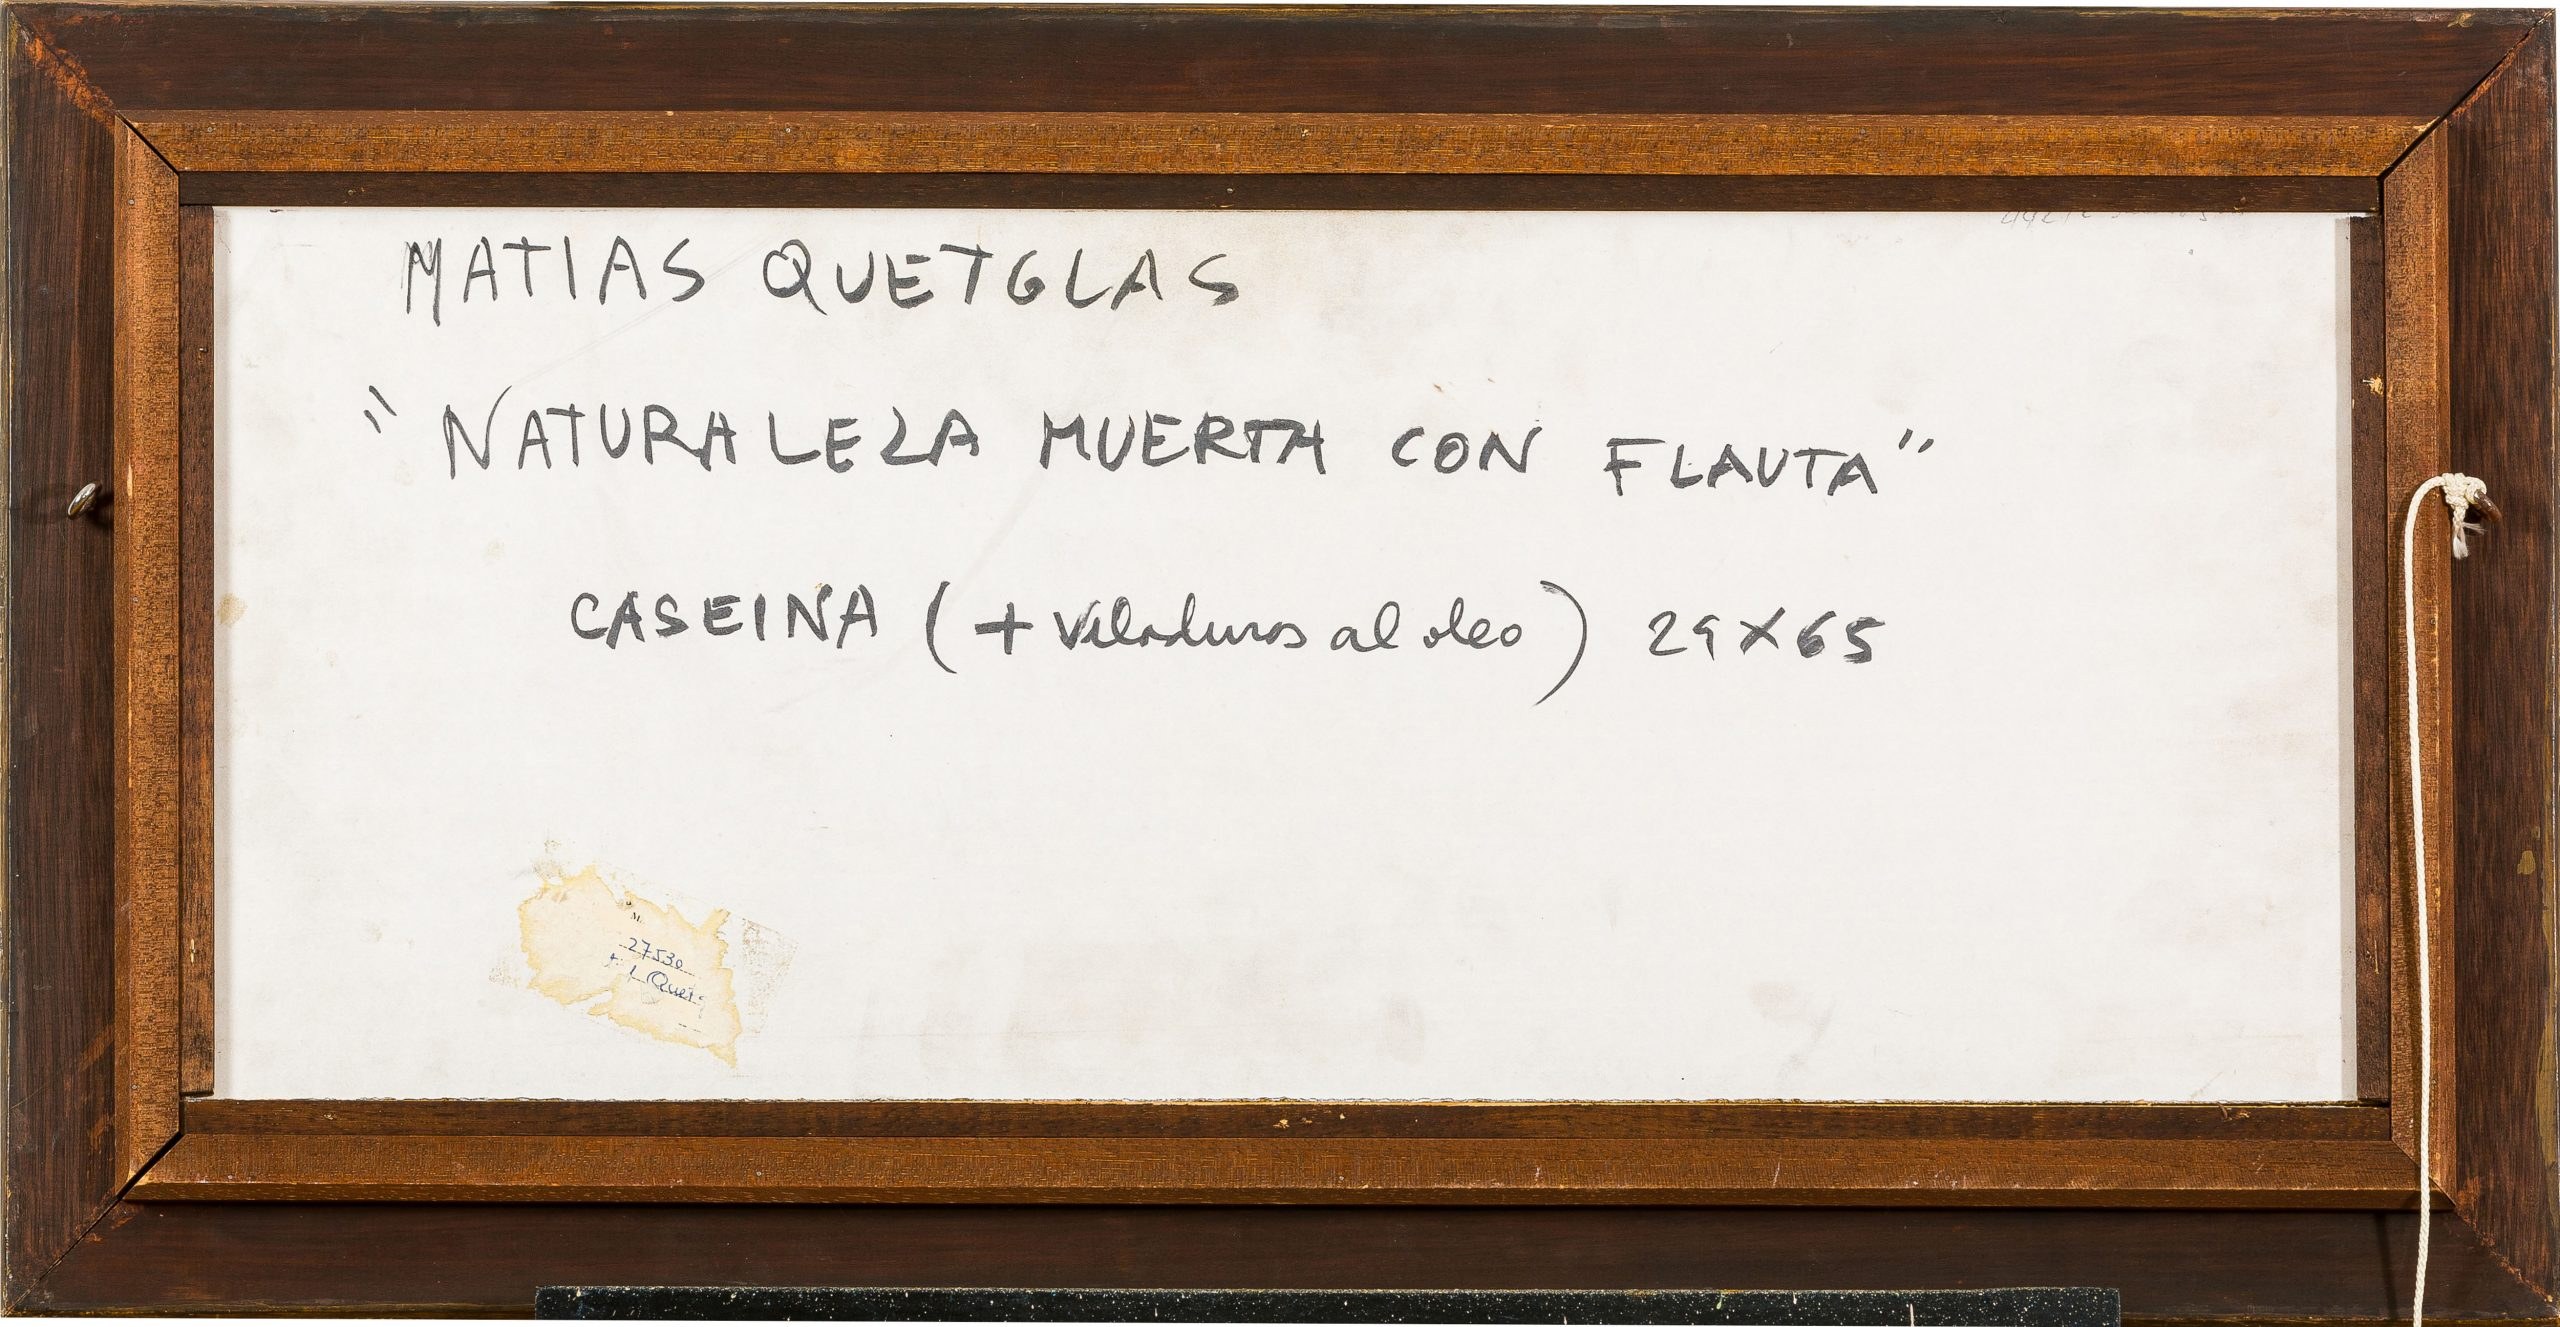 MATIAS QUETGLAS
"NATURALEZA MUERTA CON FLAUTA"
CASEINA (+ veladuras al oleo) 29X65
M.
27530
Quet